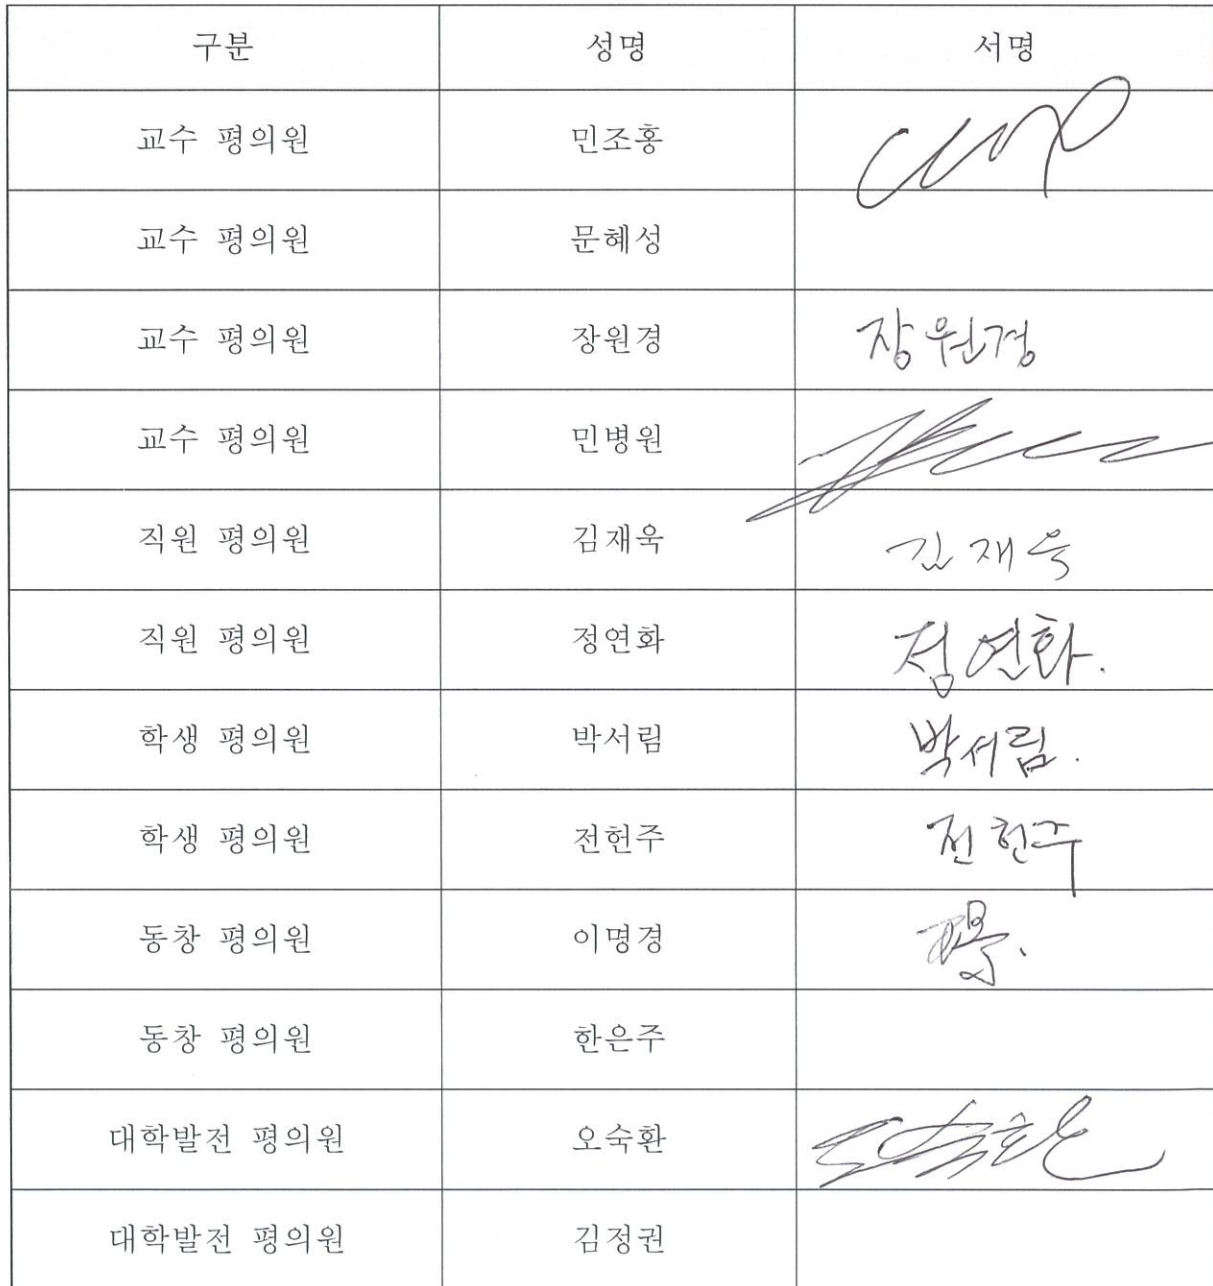 구분 성명 서명
교수 평의원 민조홍
교수 평의원 문혜성
교수 평의원 장원경 장원경
교수 평의원 민병원
직원 평의원 김재욱 김재욱
직원 평의원 정연화 정연화.
학생 평의원 박서림 박서림.
학생 평의원 전헌주 전헌주
동창 평의원 이명경
동창 평의원 한은주
대학발전 평의원 오숙환 오숙환
대학발전 평의원 김정권